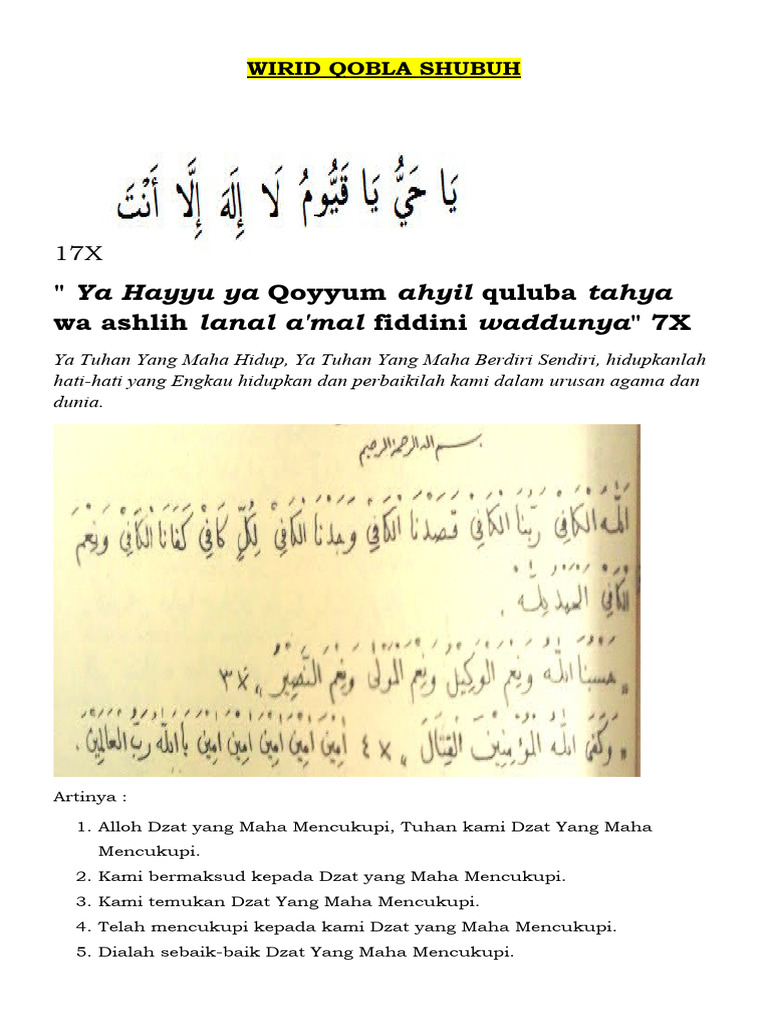 WIRID QOBLA SHUBUH
يَا حَيُّ يَا قَيُّومُ لَا إِلَهَ إِلَّا أَنْتَ
17X
" Ya Hayyu ya Qoyyum ahyil quluba tahya
wa ashlih lanal a'mal fiddini waddunya" 7X
Ya Tuhan Yang Maha Hidup, Ya Tuhan Yang Maha Berdiri Sendiri, hidupkanlah
hati-hati yang Engkau hidupkan dan perbaikilah kami dalam urusan agama dan
dunia.
بسم الله الرحمن الرحيم
الله الكَافِي رَبُّنَا الكَافِي قَصَدْنَا الكَافِي وَجَدْنَا الكَافِي لِكُلٍّ كَافِي كَفَانَا الكَافِي وَنِعْمَ
الكَافِي الحمد لله .
" حَسْبُنَا الله وَنِعْمَ الوَكِيل وَنِعْمَ المَوْلَى وَنِعْمَ النَّصِير " ٣x
" وَكَفَى الله المُؤْمِنِينَ القِتَال " ٤x أمِين أمِين أمِين أمِين يَا الله رَبَّ العَالَمِين .
Artinya :
1. Alloh Dzat yang Maha Mencukupi, Tuhan kami Dzat Yang Maha
Mencukupi.
2. Kami bermaksud kepada Dzat yang Maha Mencukupi.
3. Kami temukan Dzat Yang Maha Mencukupi.
4. Telah mencukupi kepada kami Dzat yang Maha Mencukupi.
5. Dialah sebaik-baik Dzat Yang Maha Mencukupi.